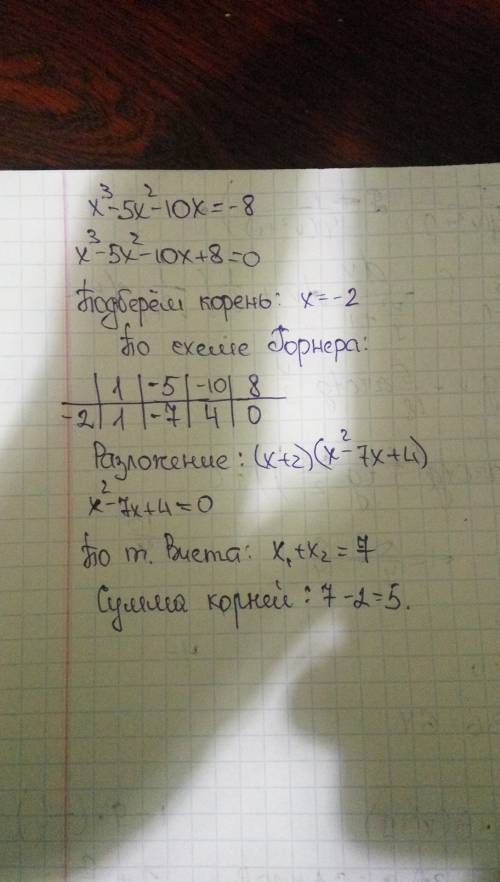 x³-5x²-10x=-8
x³-5x²-10x+8=0
Подберём корень: x=-2
По схеме Горнера:
1 | -5 | -10 | 8
-2 | 1 | -7 | 4 | 0
Разложение: (x+2)(x²-7x+4)
x²-7x+4=0
По т. Виета: x₁+x₂=7
Сумма корней: 7-2=5.